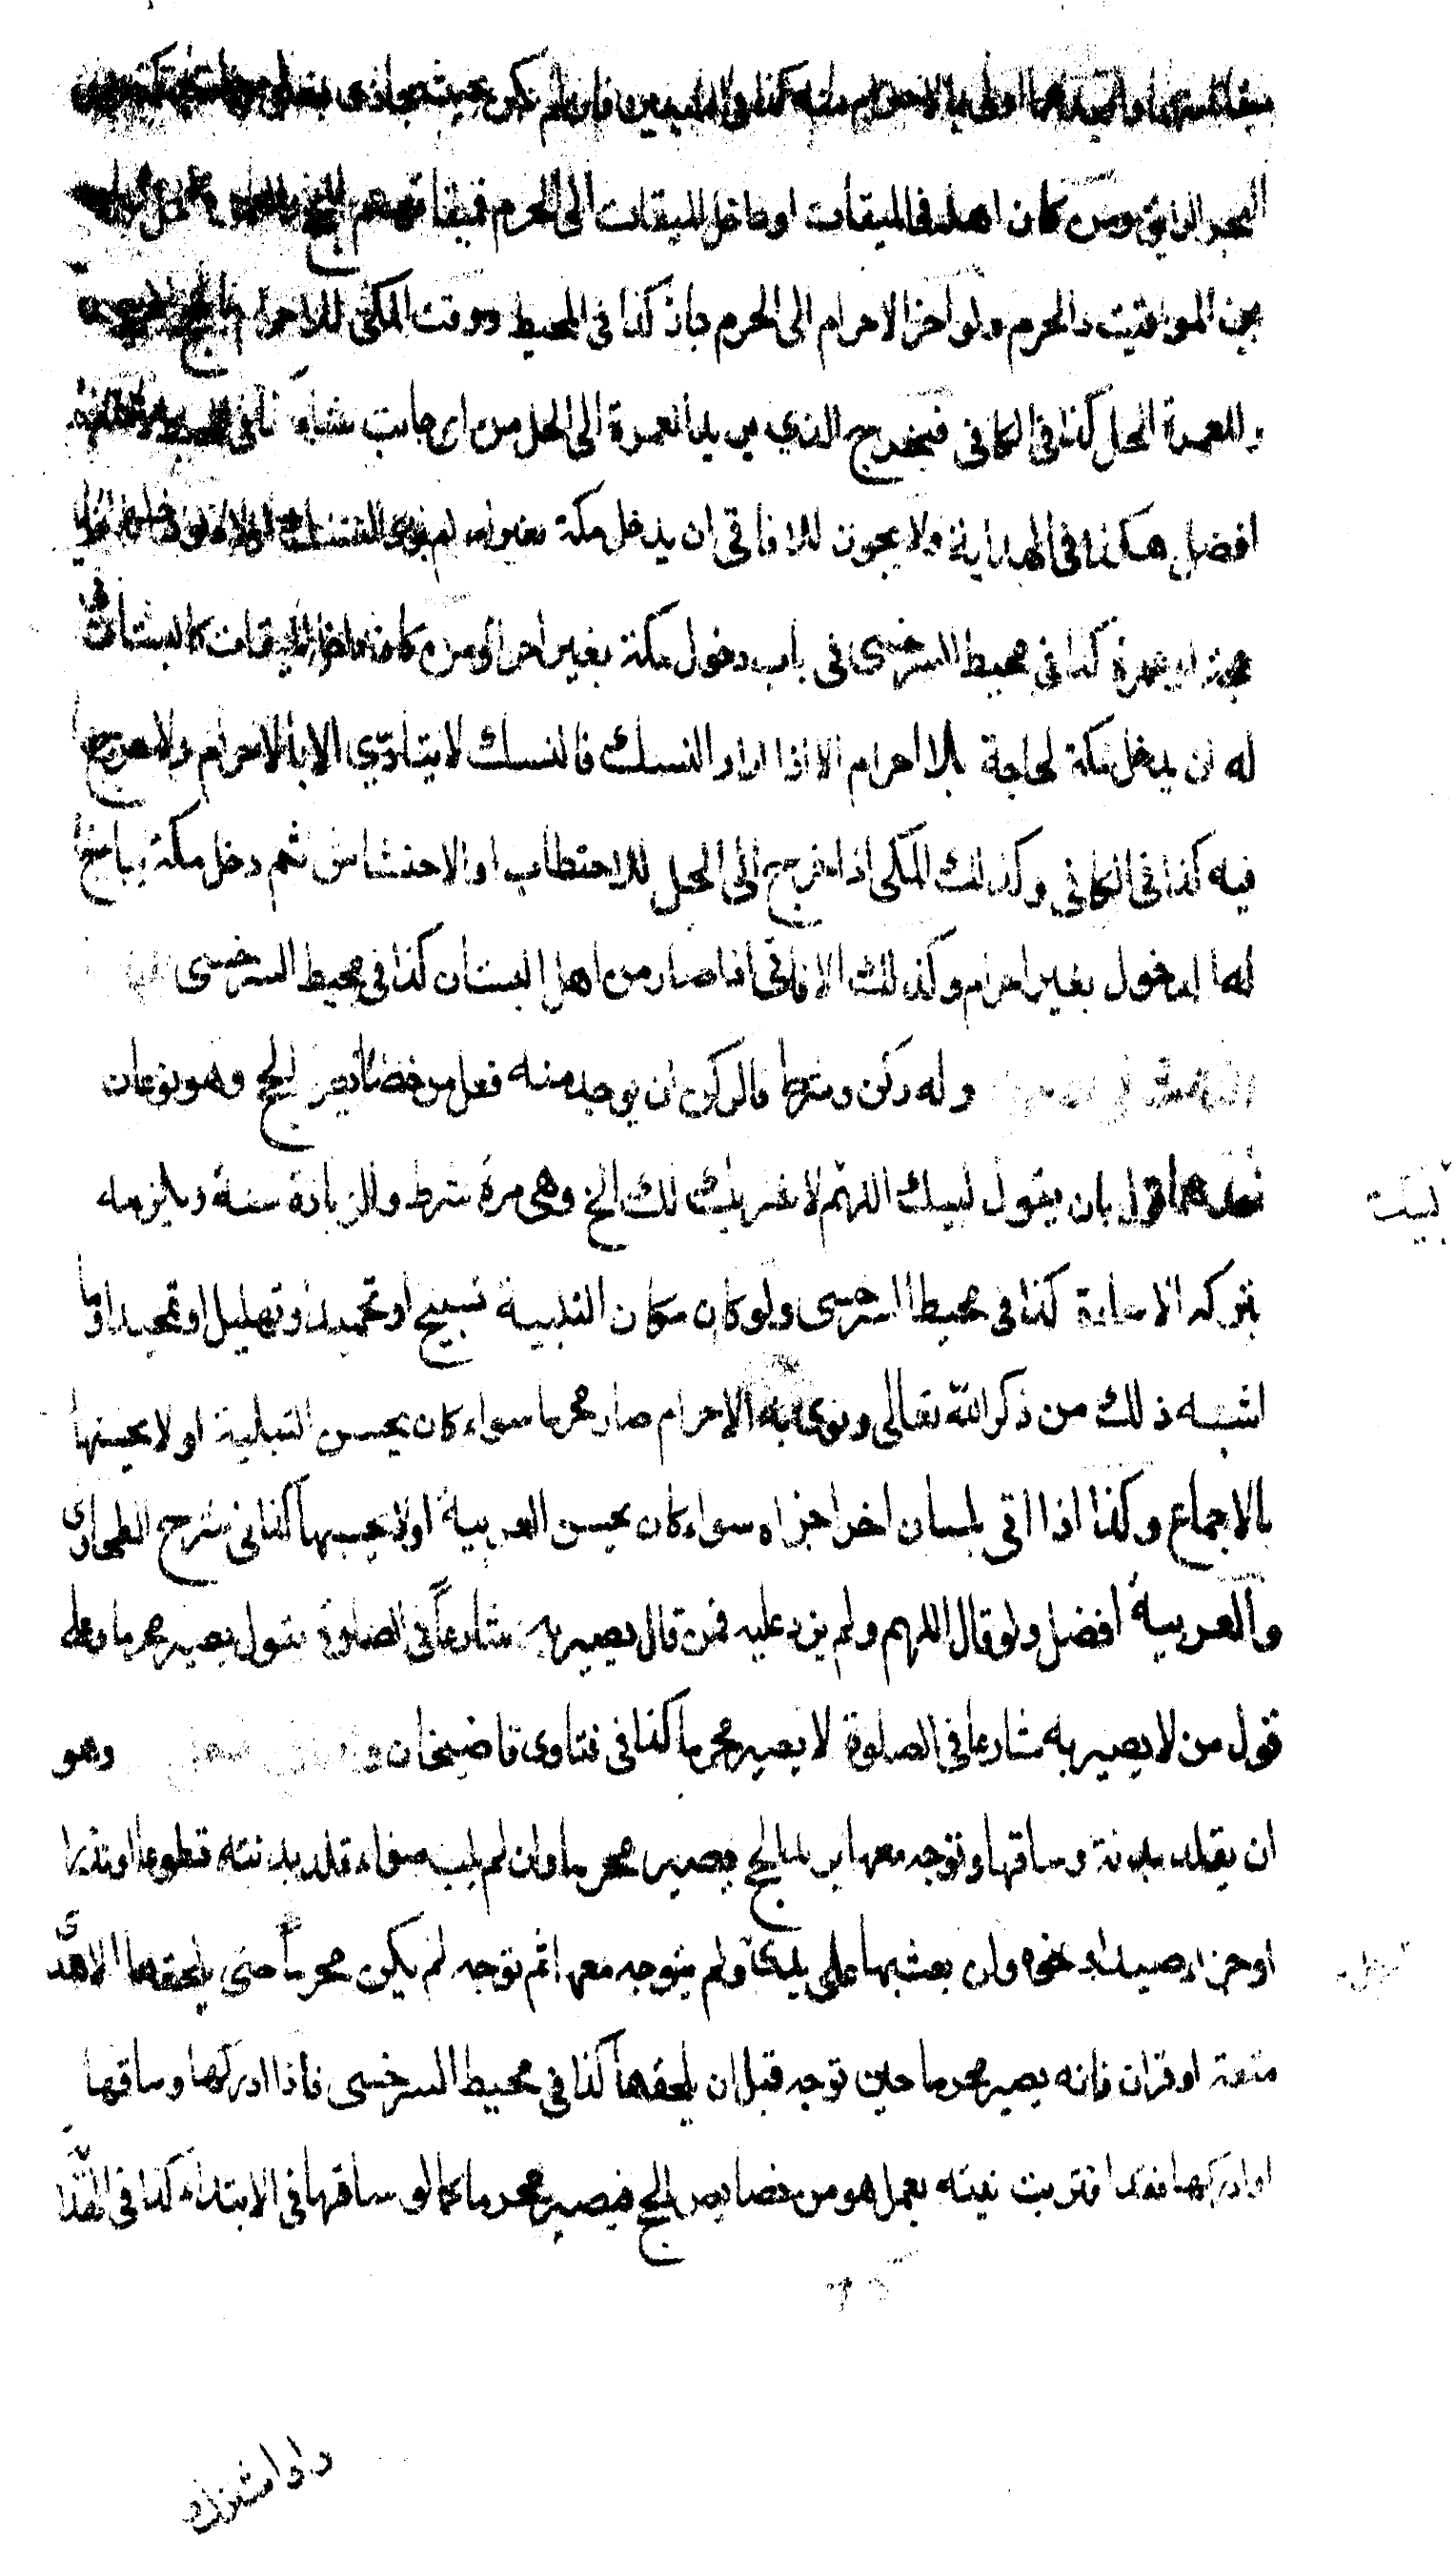 اولى بالاحرام منه كذا فى التبيين فان لم يكن بحيث يحاذى
البحر الرايق ومن كان اهله فى الميقات او داخل الميقات الى الحرم فميقاتهم للحج
بين المواقيت والحرم ولو اخر الاحرام الى الحرم جاز كذا فى المحيط ووقت المكى للاحرام بالحج الحرم
وللعمرة الحل كذا فى الكافى فيخرج الذي يريد العمرة الى الحل من اى جانب شاء كذا فى المحيط
افضل هكذا فى الهداية ولا يجوز للافاقى ان يدخل مكة بغير احرام نوى النسك اولا ولو دخلها فعليه
حجة او عمرة كذا فى محيط السرخسى فى باب دخول مكة بغير احرام ومن كان داخل الميقات كالبستانى
له ان يدخل مكة لحاجة بلا احرام الا اذا اراد النسك فالنسك لا يتادي الا بالاحرام ولا حرج
فيه كذا فى الكافي وكذلك المكى اذا خرج الى الحل للاحتطاب او الاحتشاش ثم دخل مكة يباح
لها الدخول بغير احرام وكذلك الافاقى اذا صار من اهل البستان كذا فى محيط السرخسى
وله ركن وشرط فالركن ان يوجد منه فعل من خصايص الحج وهو نوعان
احدهما قول بان يقول لبيك اللهم لا شريك لك الخ وهى مرة شرط والزيادة سنة ويلزمه
لبيك
بتركه الاساءة كذا فى محيط السرخسى ولو كان مكان التلبية تسبيح او تحميد او تهليل او تمجيد او ما
اشبه ذلك من ذكر الله تعالى ونوى به الاحرام صار محرما سواء كان يحسن التلبية او لا يحسنها
بالاجماع وكذا اذا اتى بلسان اخر اجزاه سواء كان يحسن العربية اولا يحسنها كذا فى شرح الطحاوى
والعربية افضل ولو قال اللهم ولم يزد عليه فمن قال يصير به شارعاً فى الصلوة يقول يصير محرما وعلى
قول من لا يصير به شارعا فى الصلوة لا يصير محرما كذا فى فتاوى قاضيخان وهو
ان يقلد بدنة وساقها وتوجه معها يريد الحج يصير محرما وان لم يلب سواء قلد بدنته تطوعا او نذرا
او جزاء صيد او نحوه وان بعث بها على يدي ولم يتوجه معها ثم توجه لم يكن محرماً حتى يلحقها الا هدى
متعة او قران فانه يصير محرما حين توجه قبل ان يلحقها كذا فى محيط السرخسى فاذا ادركها وساقها
او ادركها فقد اقتربت نيته بعمل هو من خصايص الحج فيصير محرما كما لو ساقها فى الابتداء كذا فى